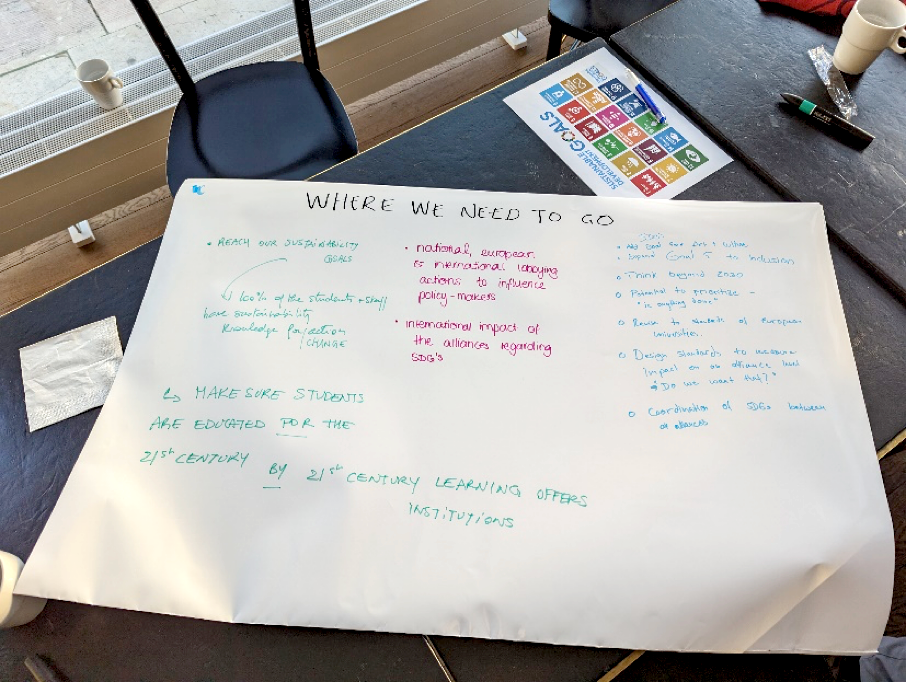 WHERE WE NEED TO GO
• REACH OUR SUSTAINABILITY
GOALS
100% of the students + staff
have sustainability
knowledge for/action
/CHANGE
↳ MAKE SURE STUDENTS
ARE EDUCATED FOR THE
21st CENTURY BY 21st CENTURY LEARNING OFFERS
INSTITUTIONS
• national, european
& international lobbying
actions to influence
policy-makers
• International impact of
the alliances regarding
SDG's
• Expand Goal 5 to Inclusion
• Think beyond 2030
• Potential to prioritise -
"is anything done"
to students of European
Universities.
• Design standards to measure
impact on an alliance level
"Do we want that?"
• Coordination of SDGs between
alliances
SUSTAINABLE
DEVELOPMENT
GOALS